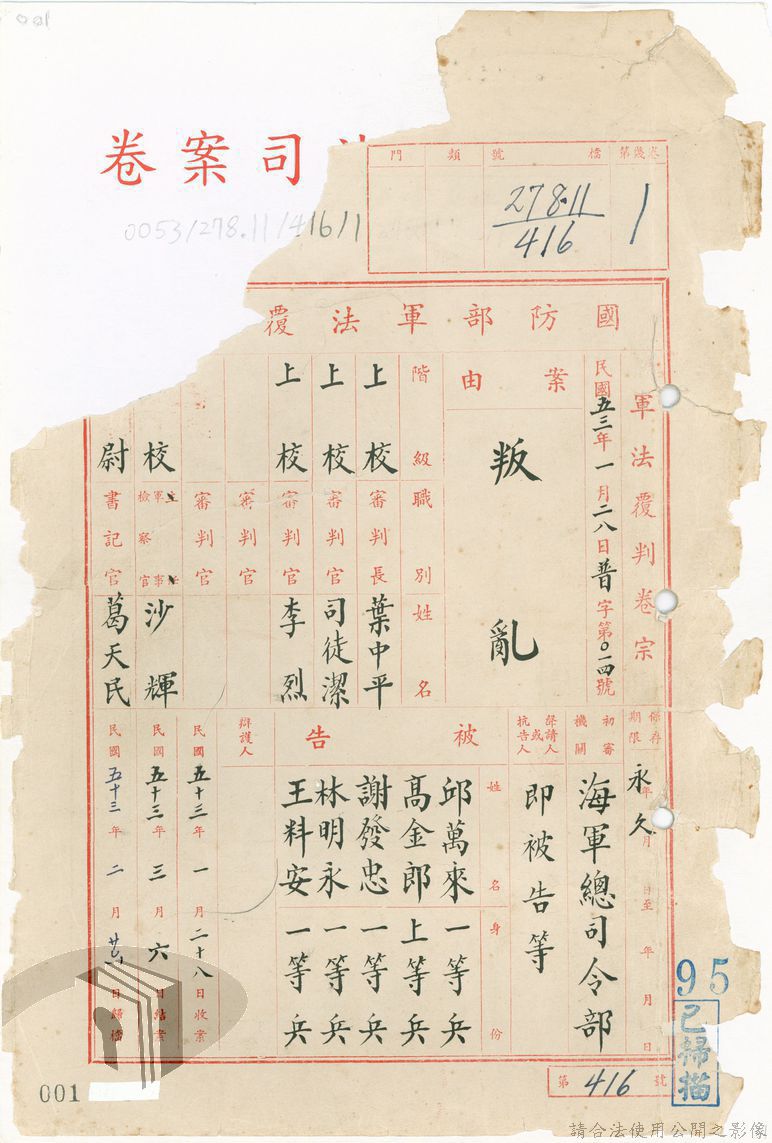 司案卷
卷幾第 1
檔號 278.11/416
類
門
0053/278.11/416/1
國防部軍法覆
軍法覆判卷宗
民國五三年一月二八日普字第〇一四號
案由
叛亂
階級 職別 姓名
上校 審判長 葉中平
上校 審判官 司徒潔
上校 審判官 李烈
審判官
審判官
校 主任軍事檢察官 沙輝
尉 書記官 葛天民
保存期限 永久 年 月 日至 年 月 日
初審機關 海軍總司令部
聲請人或抗告人 即被告等
被告
姓名 身份
邱萬來 一等兵
高金郎 上等兵
謝發忠 一等兵
林明永 一等兵
王料安 一等兵
辯護人
民國五十三年一月二十八日收案
民國五十三年三月六日結案
民國五十三年二月 日歸檔
第416號
95
已掃描
001
請合法使用公開之影像